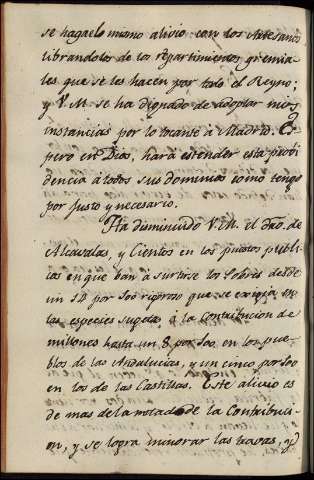 se haga el mismo alivio con los Artesanos
librandolos de los repartimientos gremia-
les que se les hacen por todo el Reyno;
y V.M. se ha dignado de adoptar mis
instancias por lo tocante à Madrid. Es-
pero en Dios, hará estender esta provi-
dencia à todos sus dominios como tengo
por justo y necesario.
Ha disminuido V.M. el dro. de
Alcavalas, y Cientos en los puestos publi-
cos en que ban à surtirse los Pobres desde
un 14 por 100 rigoroso que se exigia en
las especies sugetas à la Contribucion de
millones hasta un 8 por 100 en los pue-
blos de las Andalucias, y un cinco por 100
en los de las Castillas. Este alivio es
de mas de la mitad de la Contribuci-
on, y se logra minorar las travas, q.e